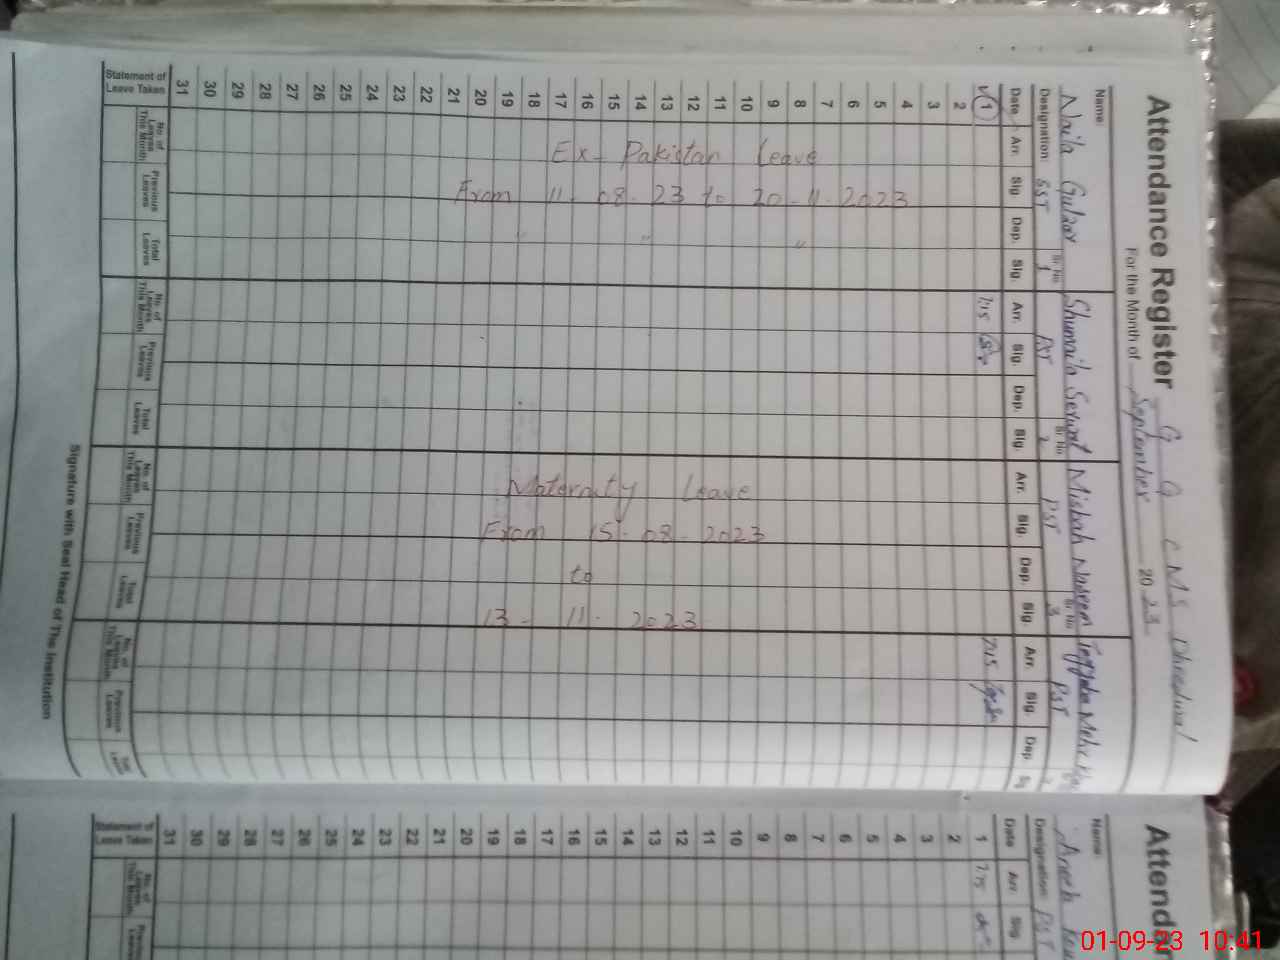 Attendance Register G G CMS Dhrediwal
For the Month of September 2023
Name: Naila Gulzar Shumaila Serwat Misbah Naseem Tayyaba
Designation: SST Sr. No 1 PST Sr. No 2 PST Sr. No 3 PST
Date Arr. Sig. Dep. Sig. Arr. Sig. Dep. Sig. Arr. Sig. Dep. Sig. Arr. Sig. Dep. Sig
1 7:15 7:15
2
3
4
5
6
7
8
9
10
11
12
13
14
15
16
17
18
19
20
21
22
23
24
25
26
27
28
29
30
31
Ex- Pakistan Leave
From 11-08-23 to 20-11-2023
Maternity Leave
From 15-08-2023
to
13-11-2023
Statement of Leave Taken
No. of Leaves This Month Previous Leaves Total Leaves No. of Leaves This Month Previous Leaves Total Leaves No. of Leaves This Month Previous Leaves Total Leaves No. of Leaves This Month Previous Leaves
Signature with Seal Head of The Institution
Attendan
Name:
Designation: PST
Date Arr. Sig.
1 7:15
2
3
4
5
6
7
8
9
10
11
12
13
14
15
16
17
18
19
20
21
22
23
24
25
26
27
28
29
30
31
Statement of Leave Taken
No. of Leaves This Month Previous
01-09-23 10:41